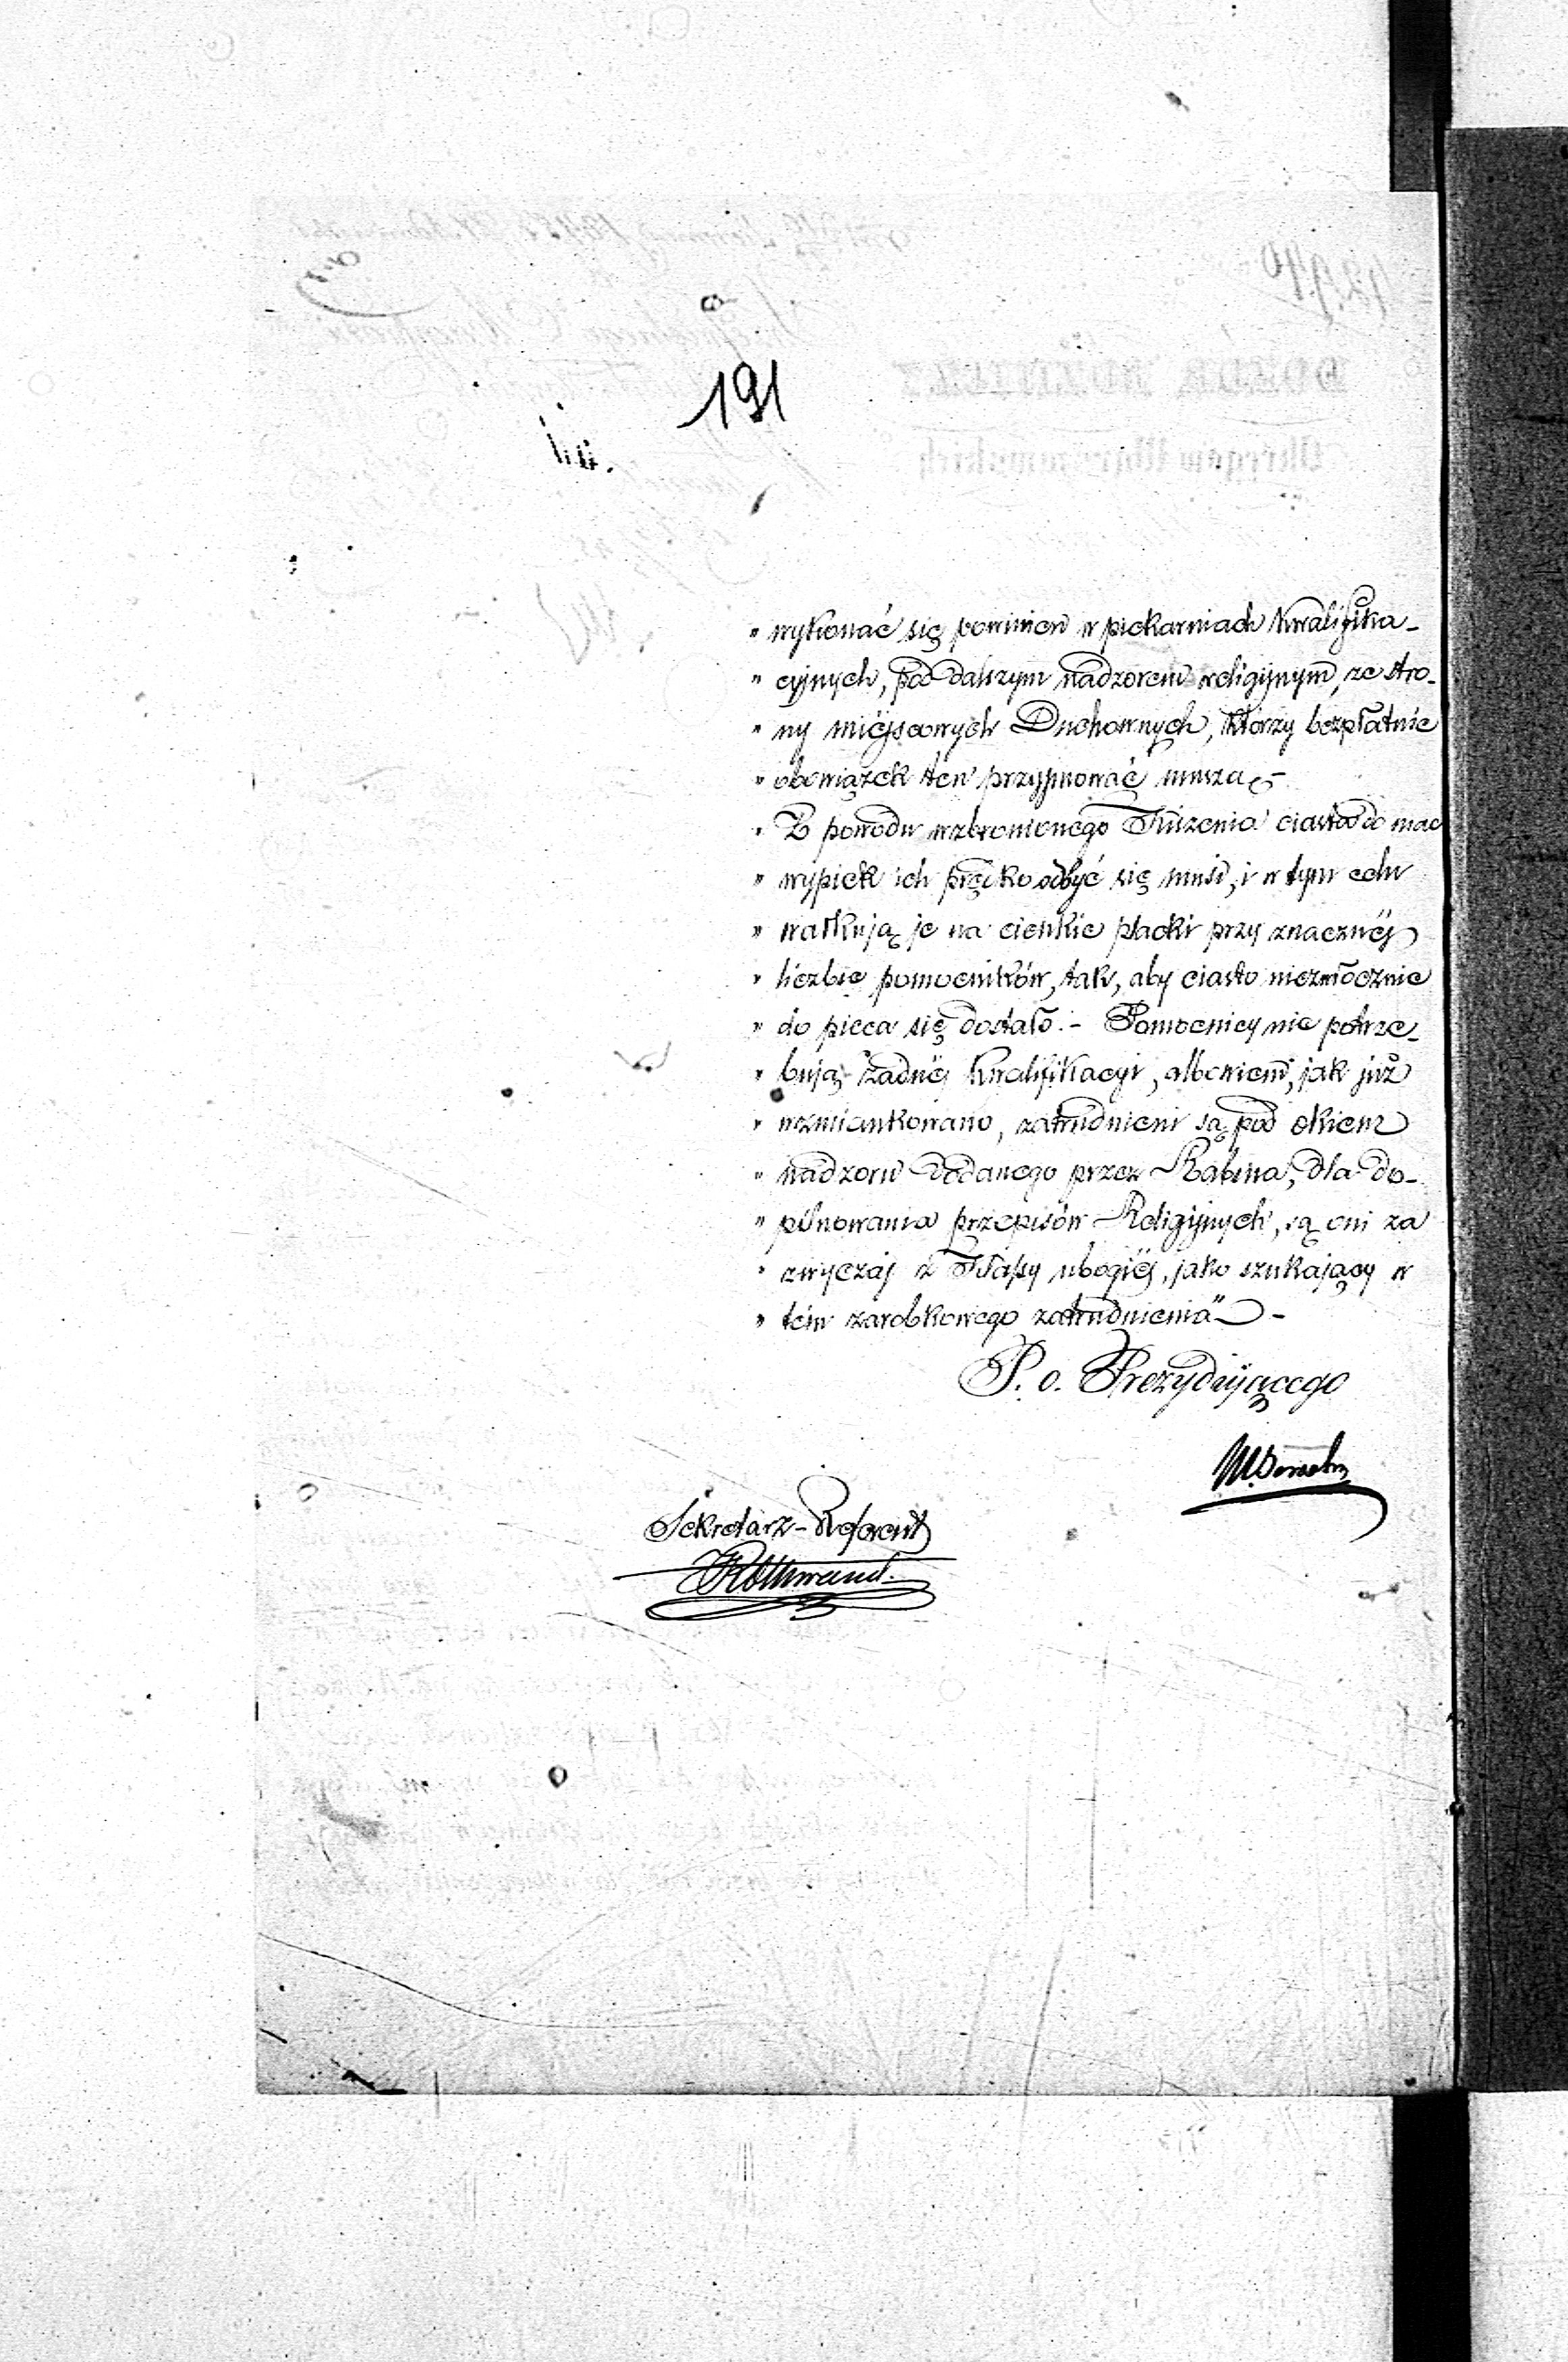 191
" wykonać się powinien w piekarniach kwalifika-
" cyjnych, pod dalszym nadzorem religijnym, ze stro-
" ny miejscowych Duchownych, którzy bezpłatnie
" obowiązek ten przyjmować muszą.-
" Z powodu wzbronionego kiszenia ciasta do mac
" wypiek ich prędko odbyć się musi, i w tym celu
" wałkują je na cienkie placki przy znacznéj
" liczbie pomocników, tak, aby ciasto niezwłocznie
" do pieca się dostało.- Pomocnicy nie potrze-
" bują żadnéj kwalifikacyi, albowiem, jak już
" wzmiankowano, zatrudnieni są pod okiem
" nadzoru dodanego przez Rabina, dla do-
" pilnowania przepisów Religijnych, są oni za
" zwyczaj z klassy ubogiéj, jako szukający w
" tém zarobkowego zatrudnienia" -
P. o. Prezydującego
Sekretarz-Referent
Rothwand.